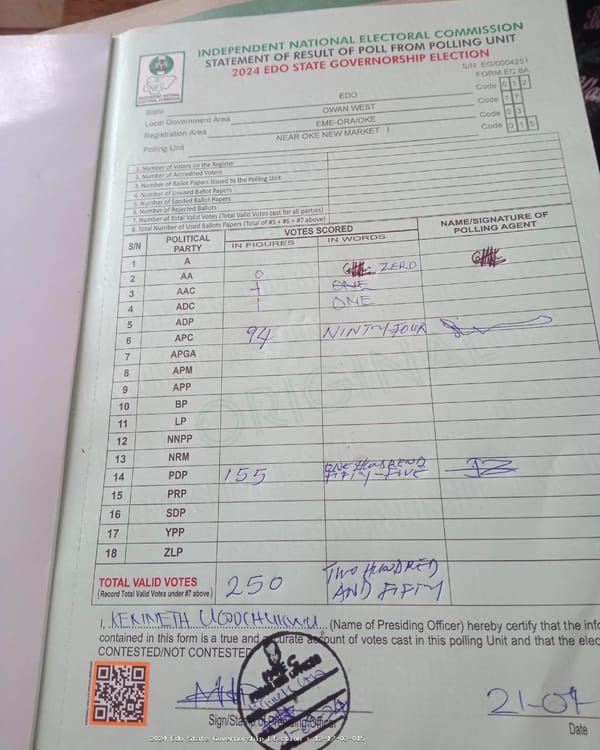 INDEPENDENT NATIONAL ELECTORAL COMMISSION
STATEMENT OF RESULT OF POLL FROM POLLING UNIT
2024 EDO STATE GOVERNORSHIP ELECTION
S/N: EG/0004251
FORM EC 8A
State EDO Code 0 1 2
Local Government Area OWAN WEST Code 1 7
Registration Area EME-ORA/OKE Code 0 3
Polling Unit NEAR OKE NEW MARKET I Code 0 1 5
1. Number of Voters on the Register
2. Number of Accredited Voters
3. Number of Ballot Papers Issued to the Polling Unit
4. Number of Unused Ballot Papers
5. Number of Spoiled Ballot Papers
6. Number of Rejected Ballots
7. Number of Total Valid Votes (Total Valid Votes cast for all parties)
8. Total Number of Used Ballots Papers (Total of #5 + #6 + #7 above)
S/N POLITICAL PARTY VOTES SCORED NAME/SIGNATURE OF POLLING AGENT
IN FIGURES IN WORDS
1 A
2 AA 0 ZERO
3 AAC 1 ONE
4 ADC 1 ONE
5 ADP
6 APC 94 NINTY FOUR
7 APGA
8 APM
9 APP
10 BP
11 LP
12 NNPP
13 NRM
14 PDP 155 ONE HUNDREND FIFTY-FIVE
15 PRP
16 SDP
17 YPP
18 ZLP
ORIGINAL
TOTAL VALID VOTES 250 TWO HUNDRED
(Record Total Valid Votes under #7 above) AND FIFTY
I, KENNETH UGOCHUKWU (Name of Presiding Officer) hereby certify that the info
contained in this form is a true and accurate account of votes cast in this polling Unit and that the elec
CONTESTED/NOT CONTESTED
Sign/Stamp of Presiding Officer
21-09
Date
2024 Edo State Governorship Election : 12-17-03-015